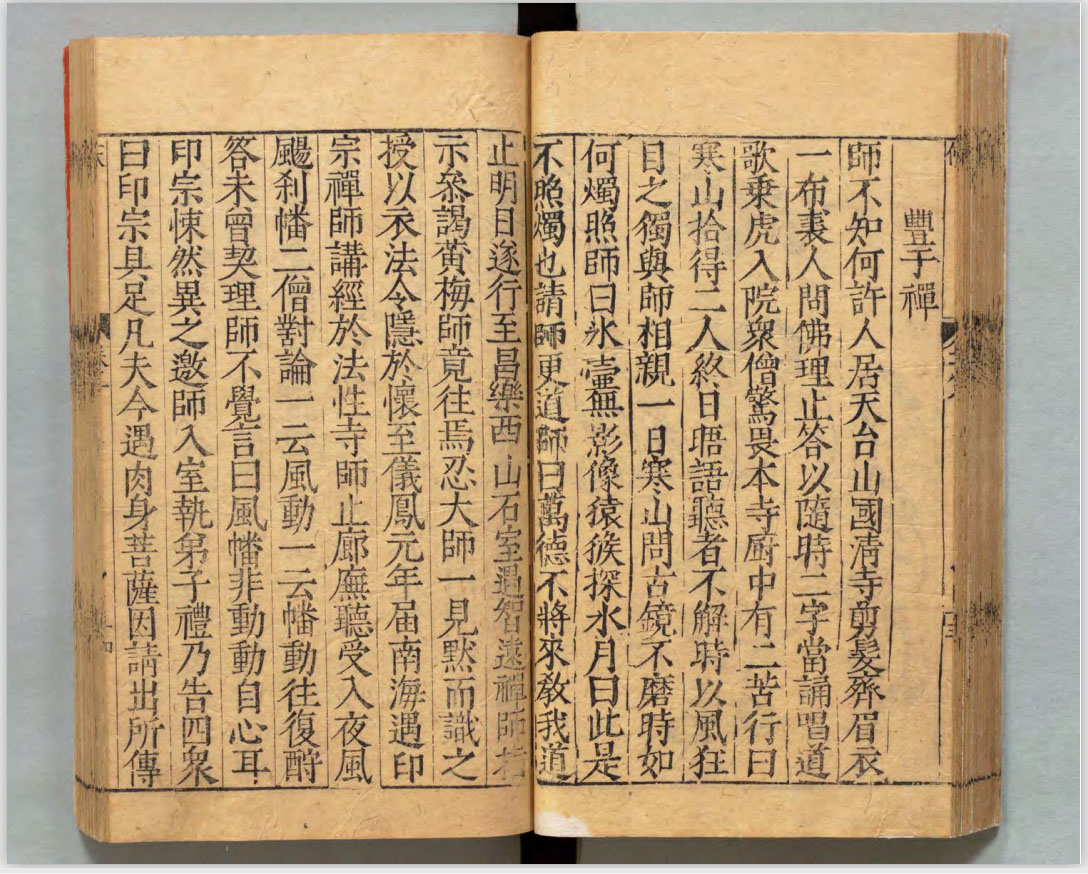 豐干禪
師不知何許人居天台山國清寺剪髮齊眉衣
一布裘人問佛理止答以隨時二字當誦唱道
歌乗虎入院衆僧驚畏本寺厨中有二苦行曰
寒山拾得二人終日晤語聽者不解時以風狂
目之獨與師相親一日寒山問古鏡不磨時如
何燭照師曰氷壷無影像猿猴探水月曰此是
不照燭也請師更道師曰萬德不將來敎我道
止明日遂行至昌樂西山石室遇智遠禪師指
示叅謁黄梅師竟往焉忍大師一見默而識之
授以衣法令隱於懷至儀鳳元年届南海遇印
宗禪師講經於法性寺師止廊廡聽受入夜風
颺刹幡二僧對論一云風動一云幡動往復酧
答未曾契理師不覺言曰風幡非動動自心耳
印宗悚然異之邀師入室執弟子禮乃告四衆
曰印宗具足凡夫今遇肉身菩薩因請出所傳